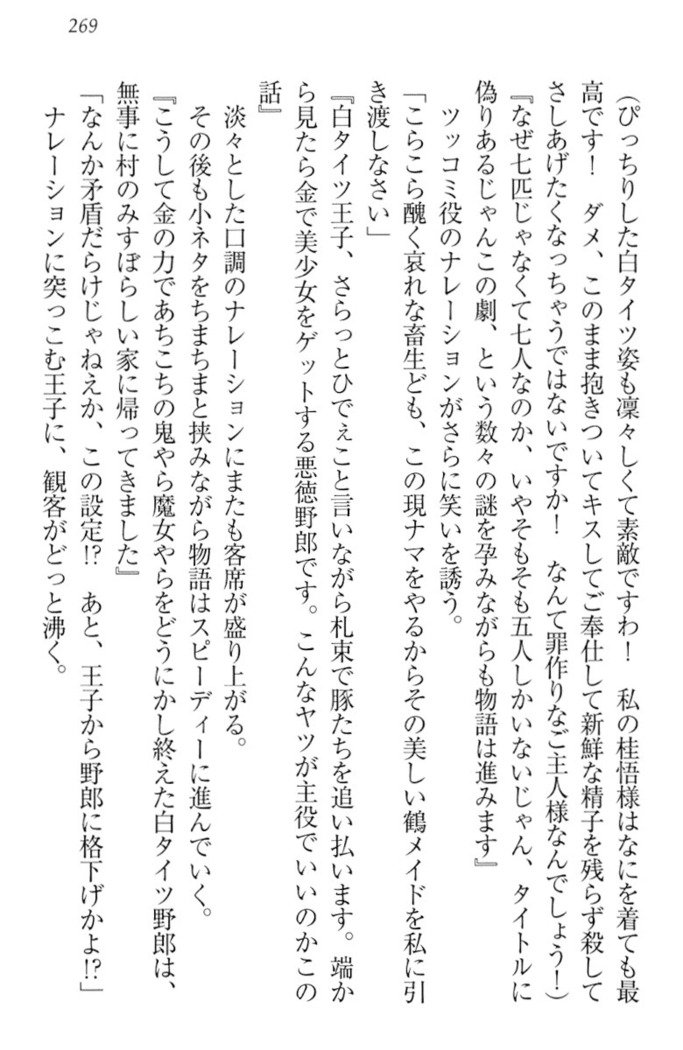 269
(ぴっちりした白タイツ姿も凛々しくて素敵ですわ！　私の桂悟様はなにを着ても最
高です！　ダメ、このまま抱きついてキスしてご奉仕して新鮮な精子を残らず殺して
さしあげたくなっちゃうではないですか！　なんて罪作りなご主人様なんでしょう！)
『なぜ七匹じゃなくて七人なのか、いやそもそも五人しかいないじゃん、タイトルに
偽りあるじゃんこの劇、という数々の謎を孕みながらも物語は進みます』
　ツッコミ役のナレーションがさらに笑いを誘う。
「こらこら醜く哀れな畜生ども、この現ナマをやるからその美しい鶴メイドを私に引
き渡しなさい」
『白タイツ王子、さらっとひでぇこと言いながら札束で豚たちを追い払います。端か
ら見たら金で美少女をゲットする悪徳野郎です。こんなヤツが主役でいいのかこの
話』
　淡々とした口調のナレーションにまたも客席が盛り上がる。
　その後も小ネタをちまちまと挟みながら物語はスピーディーに進んでいく。
『こうして金の力であちこちの鬼やら魔女やらをどうにかし終えた白タイツ野郎は、
無事に村のみすぼらしい家に帰ってきました』
「なんか矛盾だらけじゃねえか、この設定!?　あと、王子から野郎に格下げかよ!?」
　ナレーションに突っこむ王子に、観客がどっと沸く。